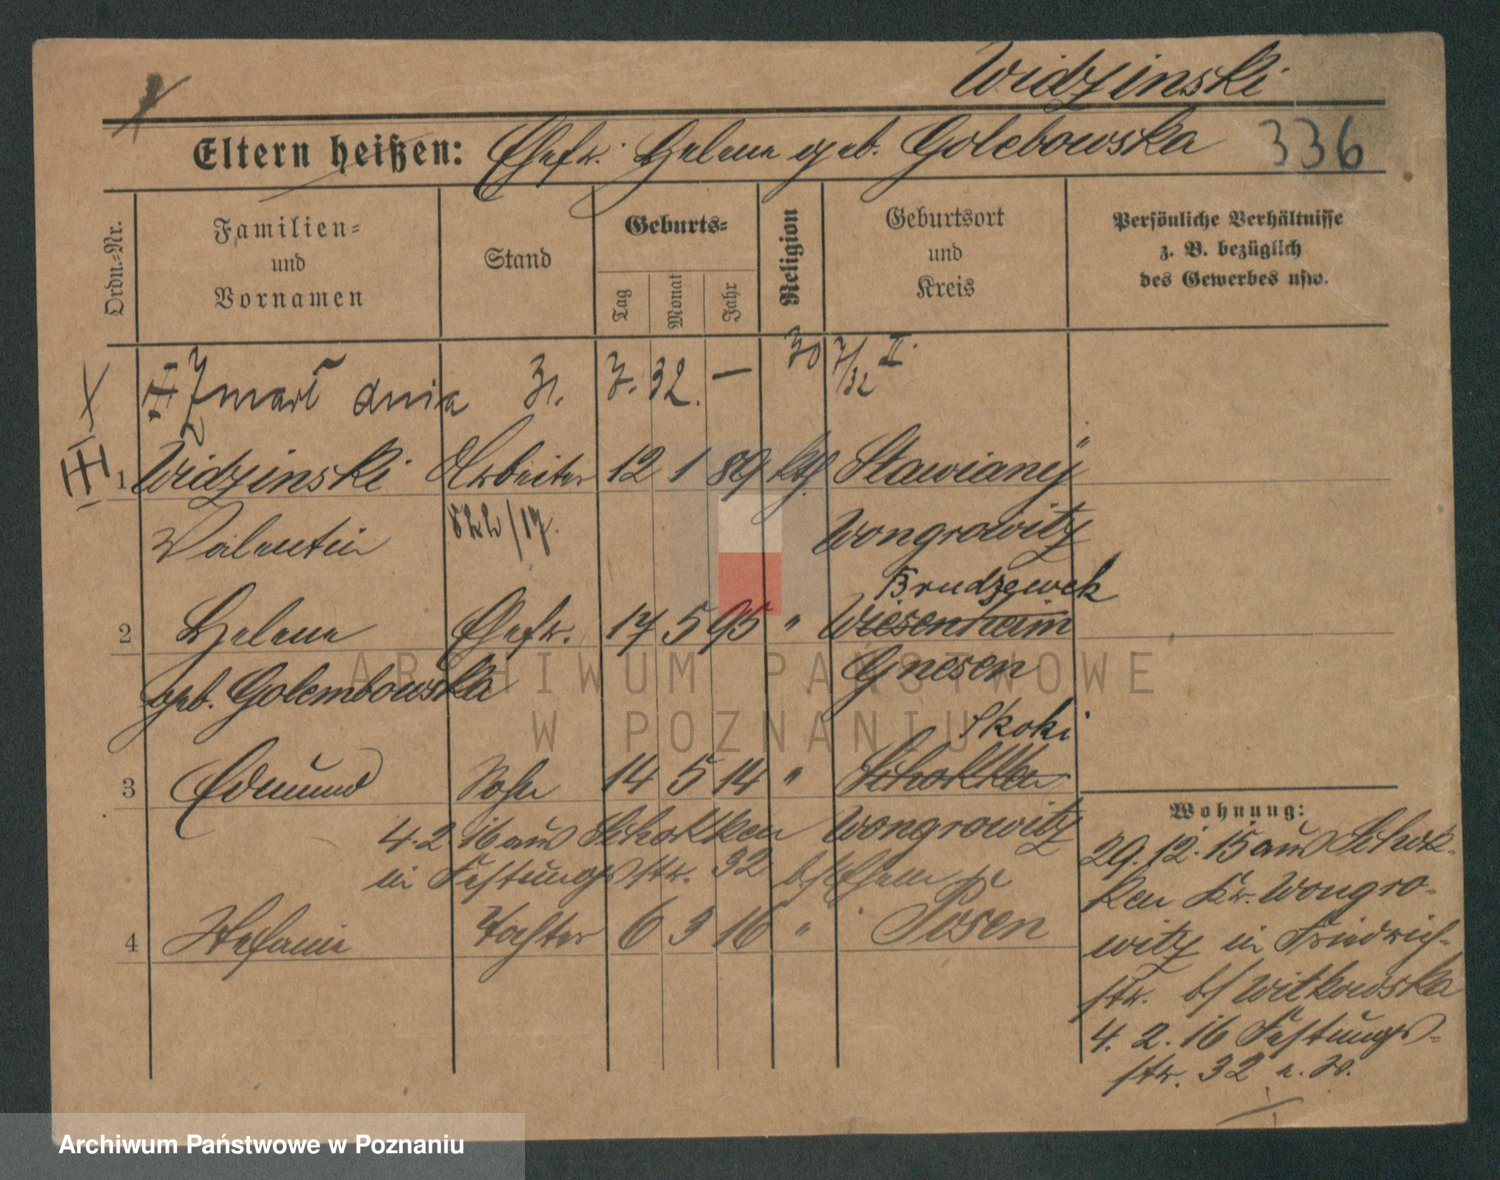 Widzinski
Eltern heißen: Ehefr. Helene geb. Golebowska 336
Ordn.-Nr.
Familien-
und
Vornamen
Stand
Geburts-
Tag
Monat
Jahr
Religion
Geburtsort
und
Kreis
Persönliche Verhältnisse
z. B. bezüglich
des Gewerbes usw.
Zmarł dnia 31. 7. 32. — 30 7/32 II.
1 Widzinski Arbeiter 12 1 89 kth Stawiany
Valentin 822/17. Wongrowitz
Brudzewek
2 Helene Ehefr. 17 5 95 " Wiesenheim
geb. Golembowska Gnesen
Skoki
3 Edmund Sohn 14 5 14 " Schokken
4.2.16 aus Schokken Wongrowitz
in Festungsstr. 32
4 Stefanie Tochter 6 3 16 " Posen
Wohnung:
29.12.15 aus Schok-
ken Kr. Wongro-
witz in Friedrich-
str. b/ Witkowska
4. 2. 16 Festungs-
str. 32
ARCHIWUM PAŃSTWOWE
W POZNANIU
Archiwum Państwowe w Poznaniu